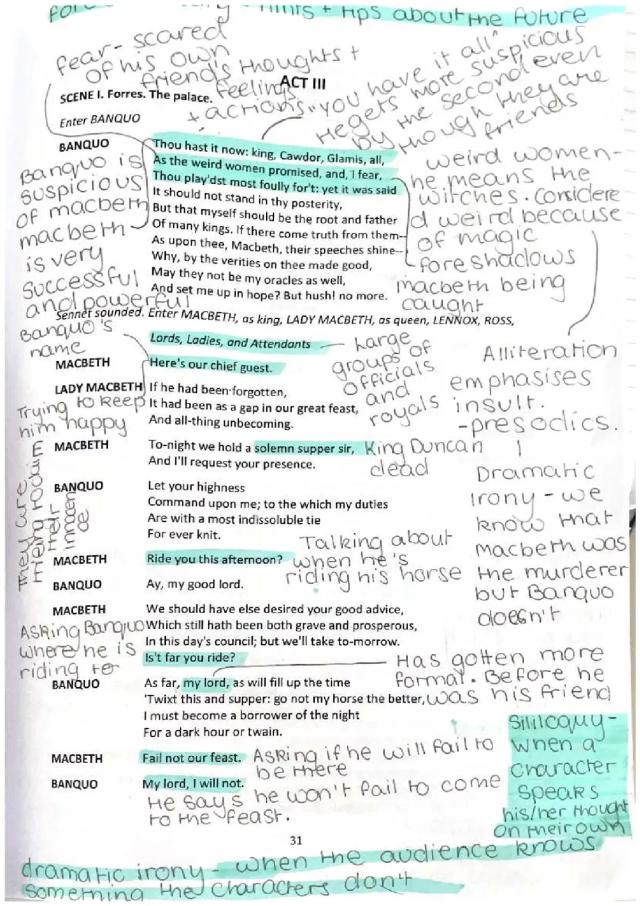 hints + tips about the future
fear- scared
of his own
friend's thoughts +
feelings
+ actions
"you have it all"
He gets more suspicious
by the second even
though they are
friends
ACT III
SCENE I. Forres. The palace.
Enter BANQUO
BANQUO Thou hast it now: king, Cawdor, Glamis, all,
As the weird women promised, and, I fear,
Thou play'dst most foully for't: yet it was said
It should not stand in thy posterity,
But that myself should be the root and father
Of many kings. If there come truth from them--
As upon thee, Macbeth, their speeches shine--
Why, by the verities on thee made good,
May they not be my oracles as well,
And set me up in hope? But hush! no more.
Banquo is
suspicious
of macbeth
macbeth
is very
successful
and powerful
weird women-
he means the
witches. Considere
d weird because
of magic
foreshadows
macbeth being
caught
Sennet sounded. Enter MACBETH, as king, LADY MACBETH, as queen, LENNOX, ROSS,
Lords, Ladies, and Attendants
Large
groups of
officials
and
royals
Banquo's
name
MACBETH Here's our chief guest.
LADY MACBETH If he had been forgotten,
It had been as a gap in our great feast,
And all-thing unbecoming.
Trying to keep
him happy
Alliteration
emphasises
insult.
-presoclics.
MACBETH To-night we hold a solemn supper sir,
And I'll request your presence.
King Duncan
dead
They are
trying to
their
innocen
ce
BANQUO Let your highness
Command upon me; to the which my duties
Are with a most indissoluble tie
For ever knit.
Dramatic
irony - we
know that
macbeth was
the murderer
but Banquo
doesn't
MACBETH Ride you this afternoon?
Talking about
when he's
riding his horse
BANQUO Ay, my good lord.
MACBETH We should have else desired your good advice,
Which still hath been both grave and prosperous,
In this day's council; but we'll take to-morrow.
Is't far you ride?
Asking Banquo
where he is
riding to
BANQUO As far, my lord, as will fill up the time
'Twixt this and supper: go not my horse the better,
I must become a borrower of the night
For a dark hour or twain.
Has gotten more
formal. Before he
was his friend
MACBETH Fail not our feast.
Asking if he will fail to
be there
BANQUO My lord, I will not.
He says he won't fail to come
to the feast.
Sililoquy-
when a
character
speaks
his/her thought
on their own
31
dramatic irony - when the audience knows
something the characters don't